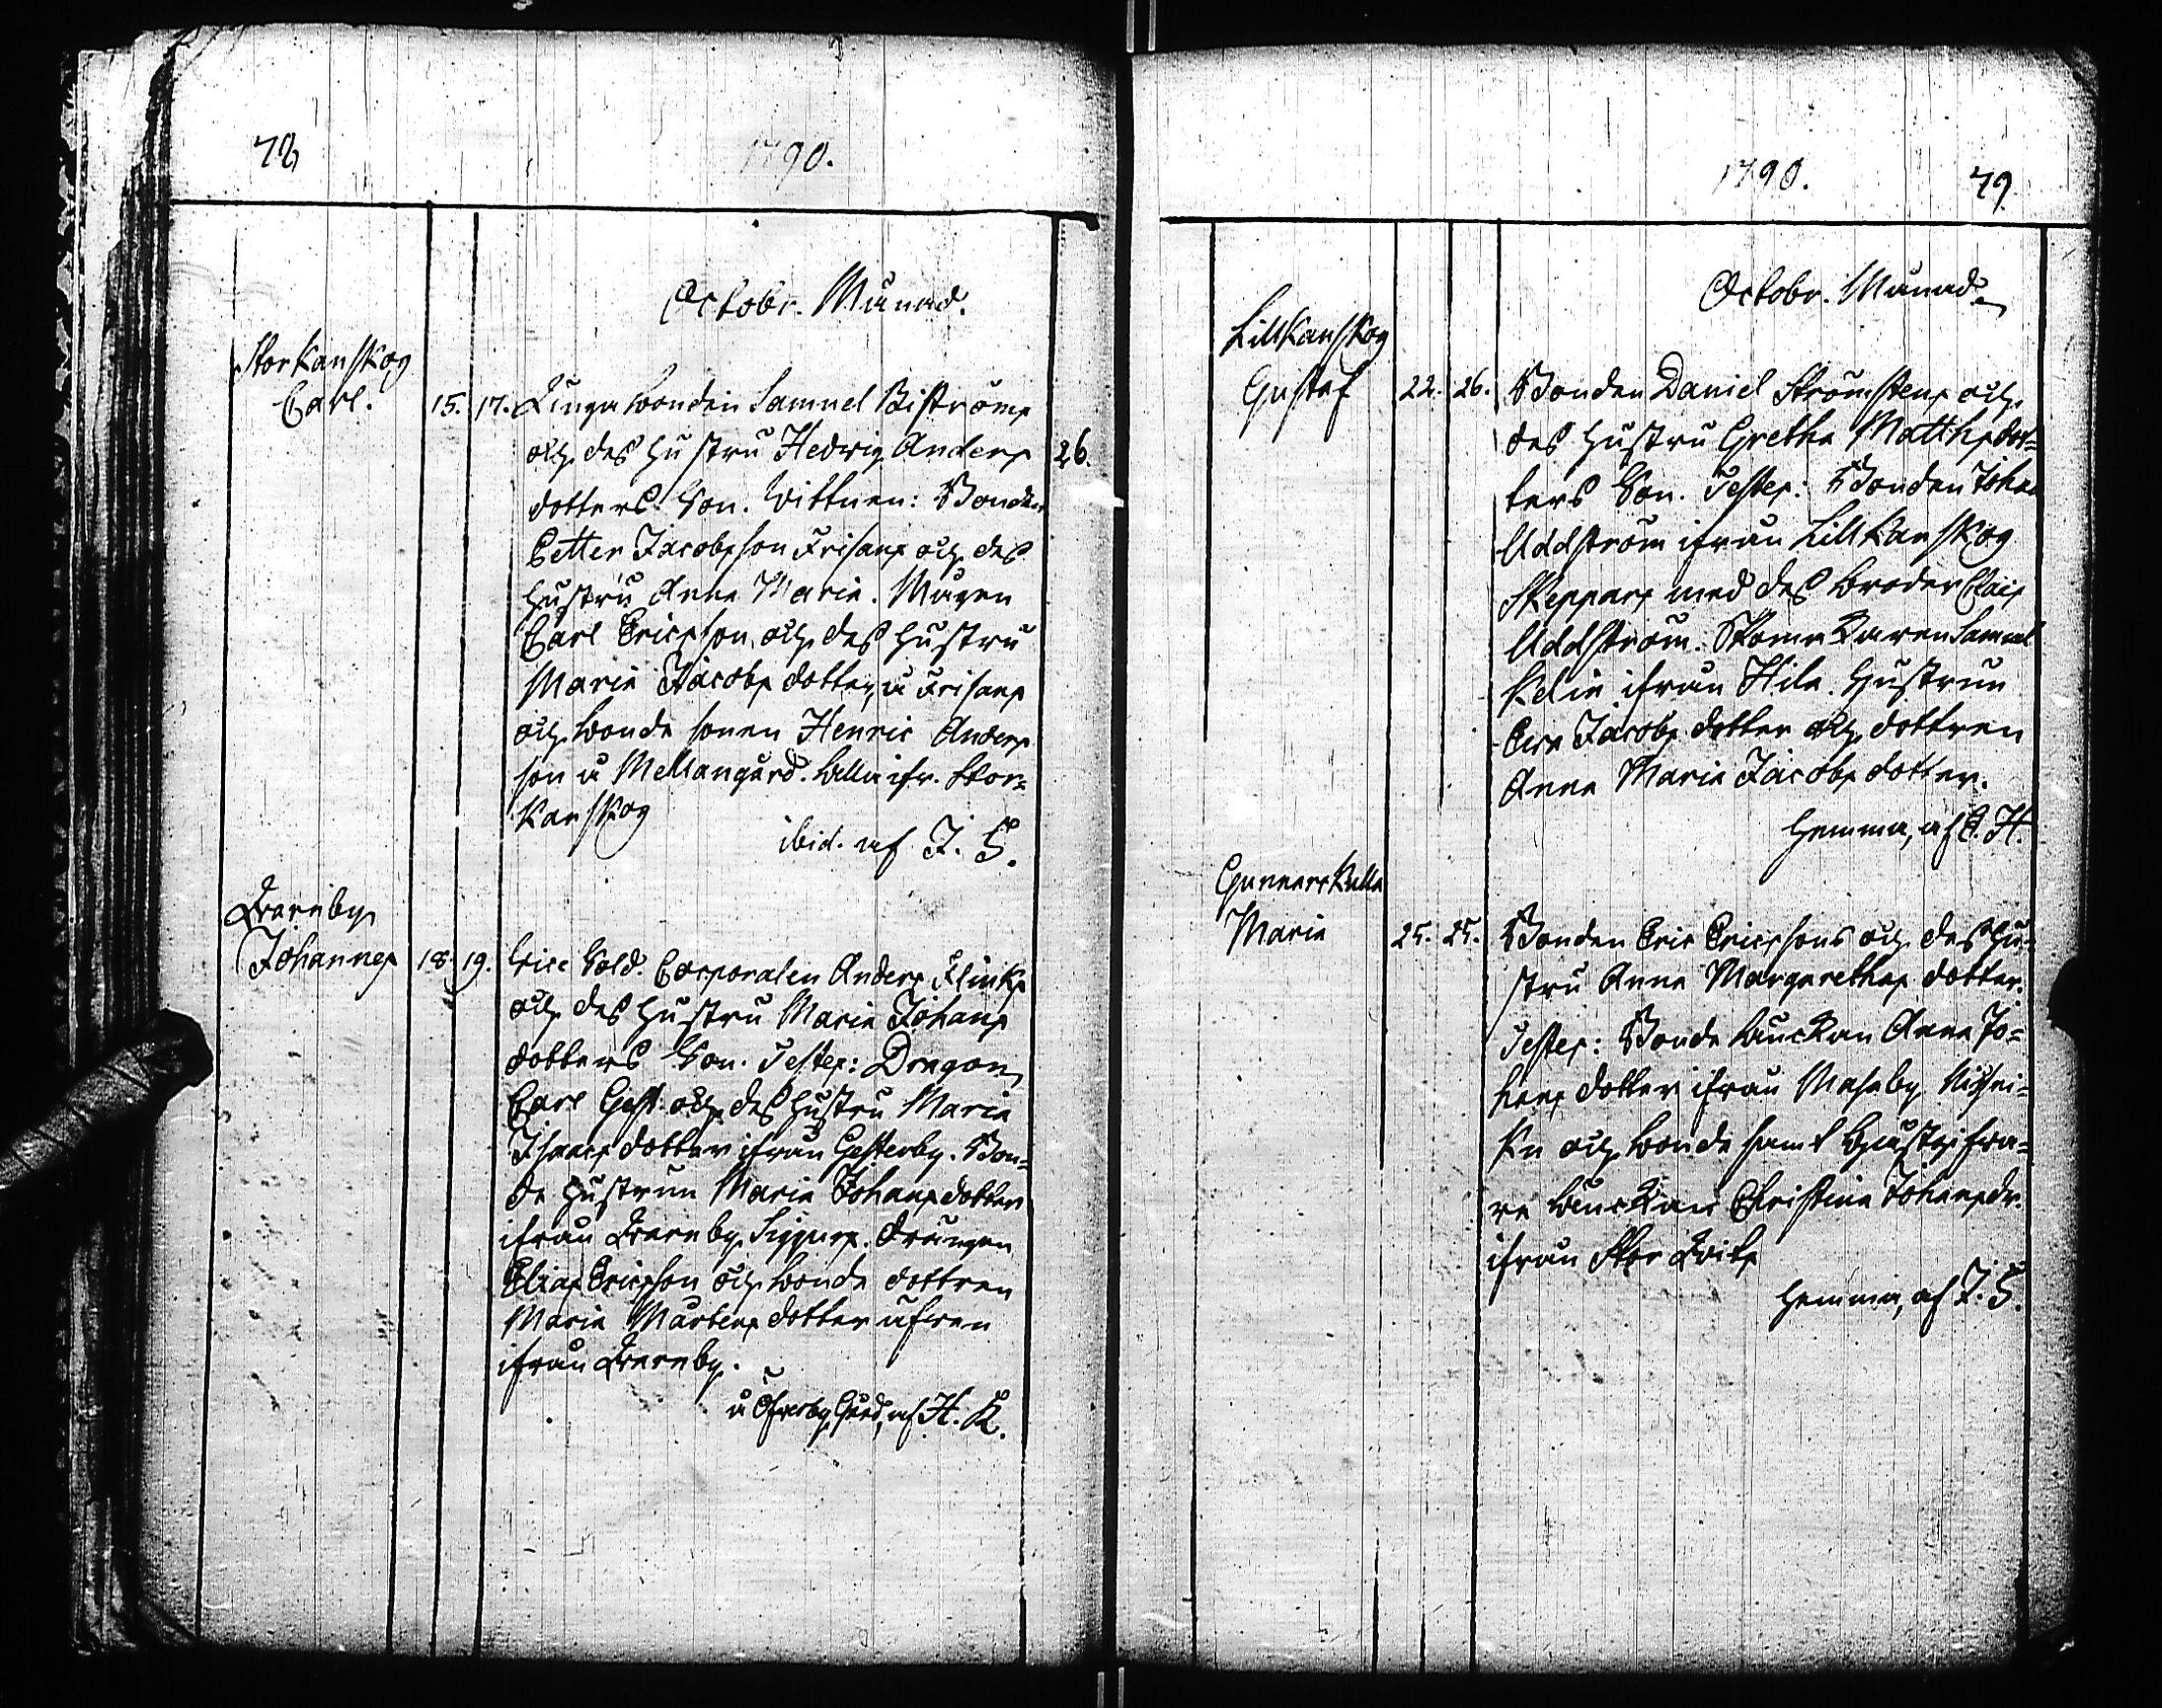 78
1790.
Octobr. Månad.
StorKanskog
Carl.
15. 17. Unga bonden Samuel Biströms
och des hustru Hedvig Anders
26.
dotters Son. Wittnen: Bonden
Petter Jacobsson Frisans och des
hustru Anna Maria. Mågen
Carl Ericsson och des hustru
Maria Jacobs dotter, å Frisans
och bonde sonen Henric Anders
son å Mellangård. Alla ifr. Stor=
Kanskog
ibid. af J. S.
Qvarnby
Johannes
18. 19. Vice Sold. Corporalen Anders Flinks
och des hustru Maria Johans
dotters Son. Testes: Dragon
Carl Gest och des hustru Maria
Isaacs dotter ifrån Gesterby. Bon=
de hustrun Maria Johans dotter
ifrån Qvarnby Siggurs. Drängen
Elias Ericsson och bonde dottren
Maria Mårtens dotter äfven
ifrån Qvarnby.
å Öfverby Gård, af H. K.
1790.
79
Octobr. Månad.
LillKanskog
Gustaf
22. 26. Bonden Daniel Strömstens och
des hustru Gretha Matthsdot=
ters Son. Testes: Bonden Johan
Uddström ifrån LillKanskog
Skeppars med des broder Clais
Uddström. Skomakaren Samuel
Kelin ifrån Hila. Hustrun
Eva Jacobs dotter och dottren
Anna Maria Jacobs dotter.
hemma, af C. H.
Gunnarskulla
Maria
25. 25. Bonden Eric Ericssons och des hu=
stru Anna Margarethas dotter.
Testes: Bonde Enckan Anna Jo=
hans dotter ifrån Masaby
Ka och bonde samt
re Enckan Christina Johansdr.
ifrån Stor Qvis
hemma, af J. S.